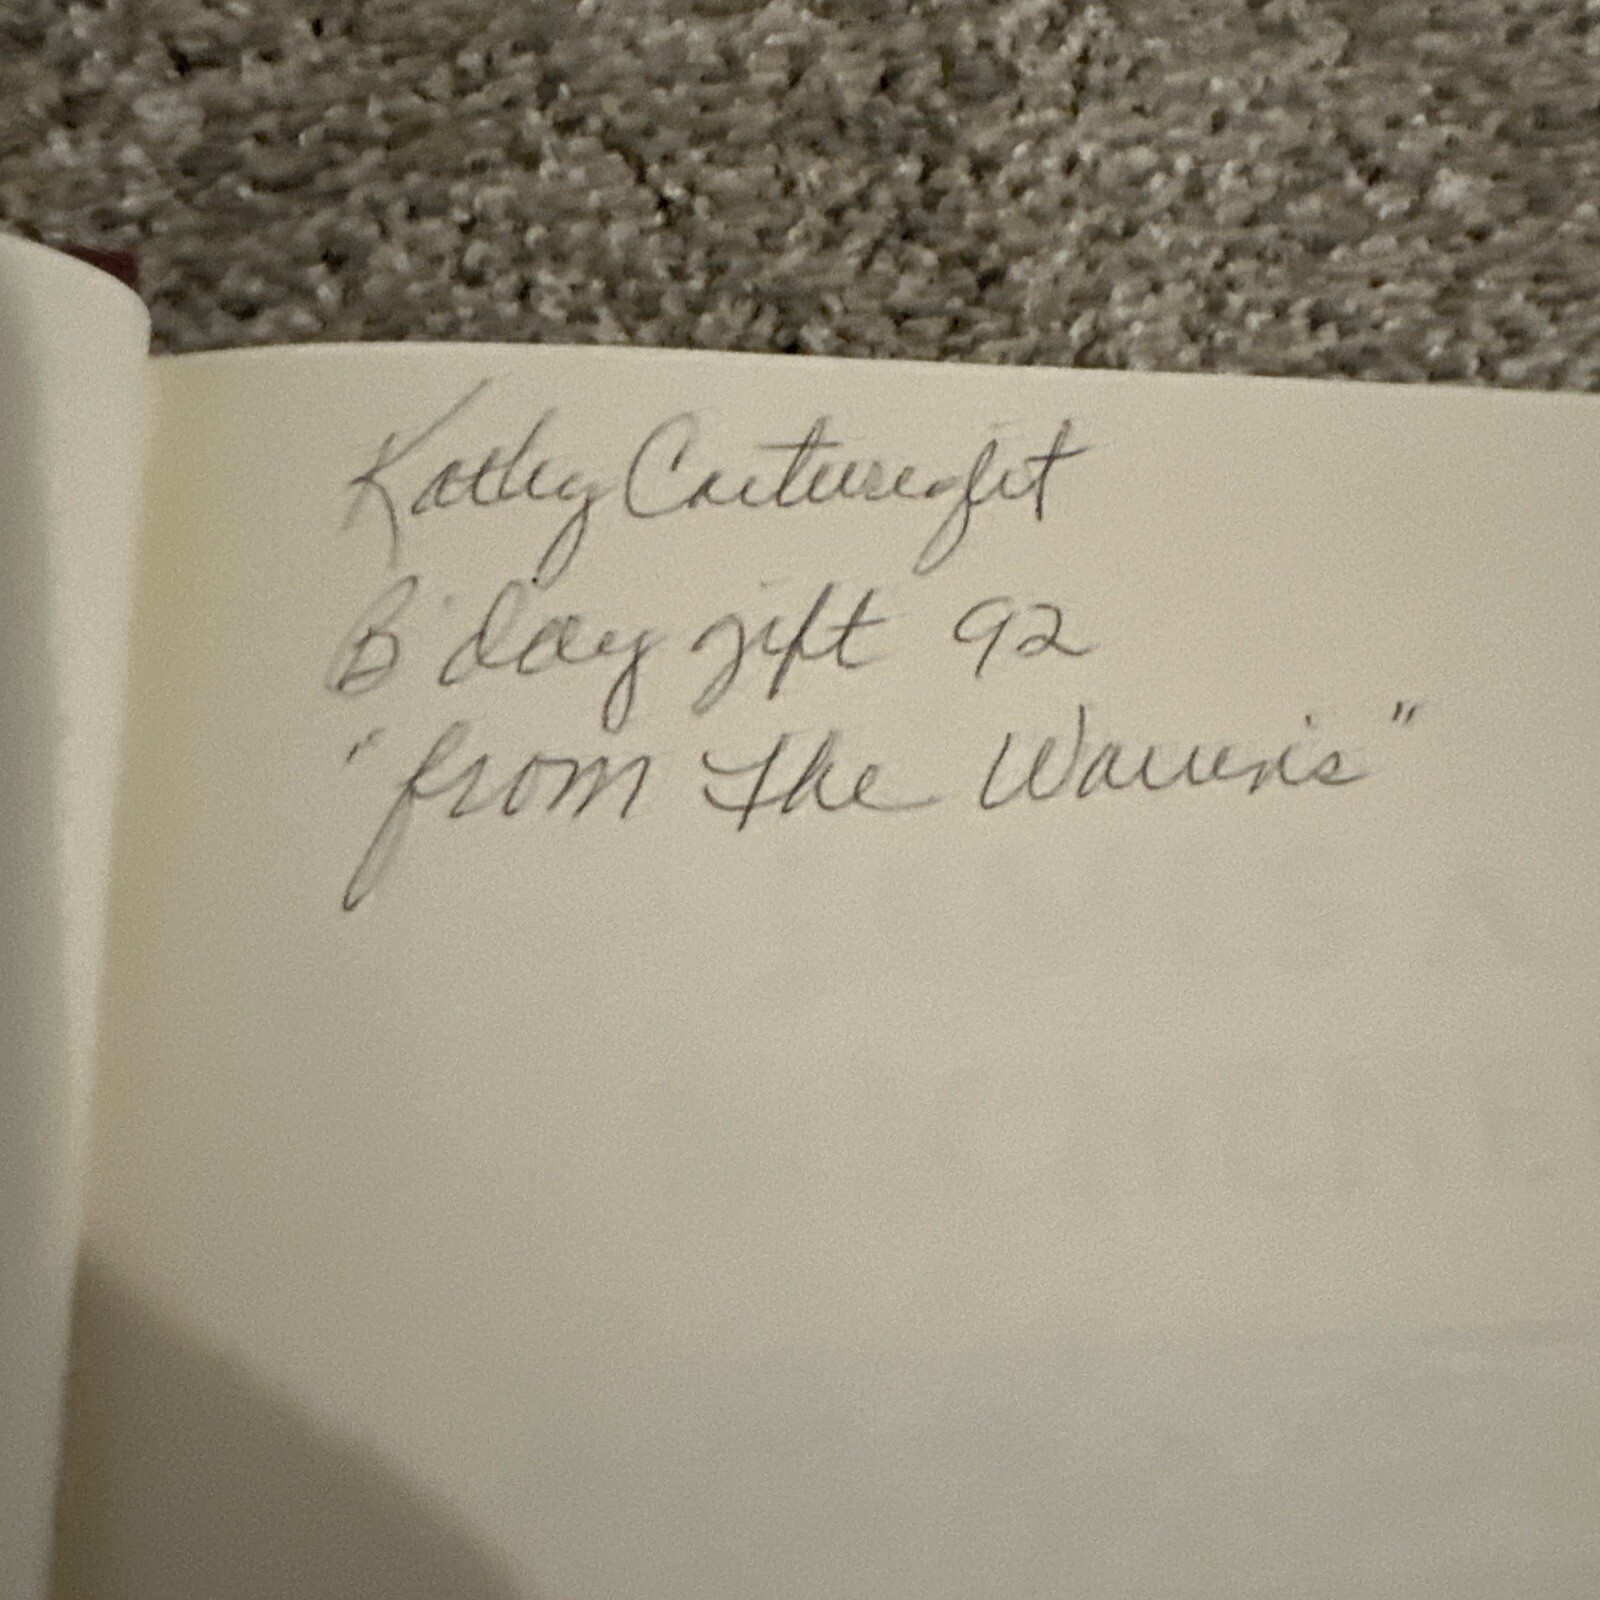 Kathy Cartwright
B'day gift 92
"from The Warren's"